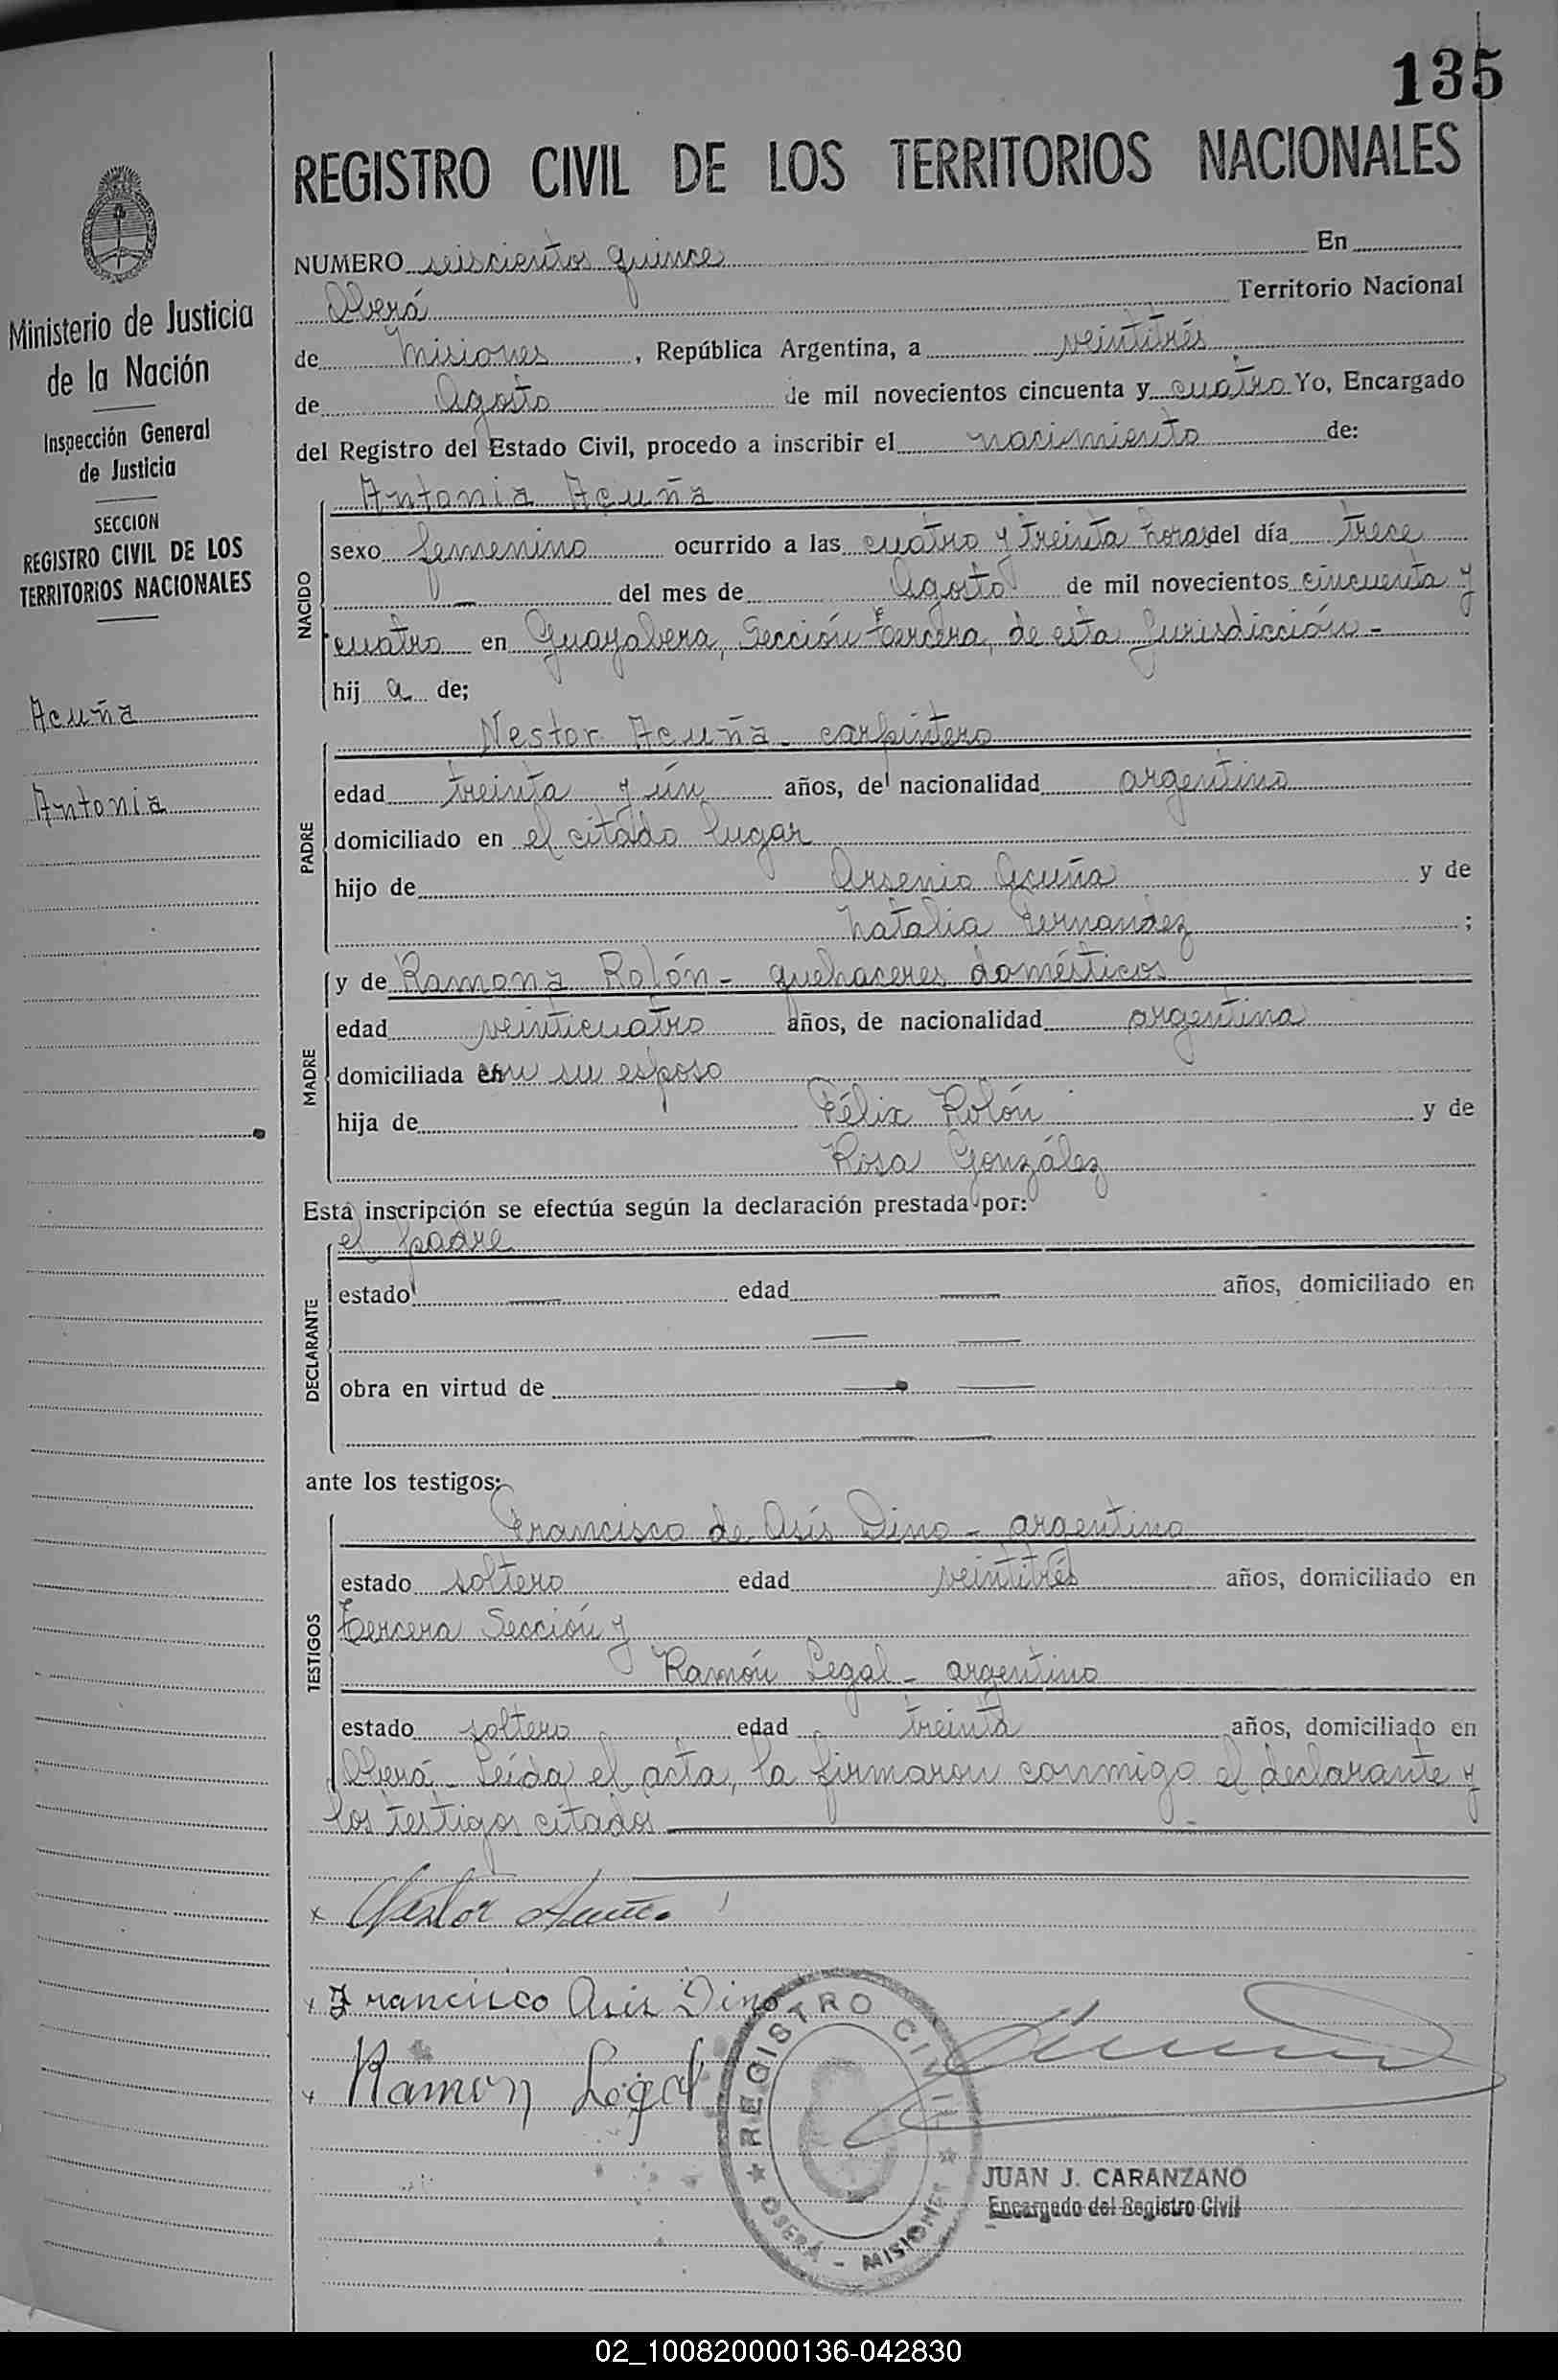 135
REGISTRO CIVIL DE LOS TERRITORIOS NACIONALES
Ministerio de Justicia
de la Nación
Inspección General
de Justicia
SECCION
REGISTRO CIVIL DE LOS
TERRITORIOS NACIONALES
Acuña
Antonia
NUMERO seiscientos quince En
Oberá Territorio Nacional
de Misiones, República Argentina, a veintitrés
de Agosto de mil novecientos cincuenta y cuatro Yo, Encargado
del Registro del Estado Civil, procedo a inscribir el nacimiento de:
NACIDO
Antonia Acuña
sexo femenino ocurrido a las cuatro y treinta horas del día trece
— del mes de Agosto de mil novecientos cincuenta y
cuatro en Guayabera, Sección tercera, de esta Jurisdicción -
hij a de;
PADRE
Nestor Acuña - carpintero
edad treinta y ún años, de nacionalidad argentino
domiciliado en el citado lugar
hijo de Arsenio Acuña y de
Natalia Fernandez ;
MADRE
y de Ramona Rolón - quehaceres domésticos
edad veinticuatro años, de nacionalidad argentina
domiciliada con su esposo
hija de Félix Rolón y de
Rosa González
Esta inscripción se efectúa según la declaración prestada por:
DECLARANTE
el padre
estado — edad — años, domiciliado en
— —
obra en virtud de — —
— —
ante los testigos:
TESTIGOS
Francisco de Asís Dino - argentino
estado soltero edad veintitrés años, domiciliado en
tercera Sección y
Ramón Legal - argentino
estado soltero edad treinta años, domiciliado en
Oberá - Leída el acta, la firmaron conmigo el declarante y
los testigos citados
x Nestor Acuña
x Francisco Asis Dino
x Ramon Legal
REGISTRO CIVIL
OBERÁ - MISIONES
JUAN J. CARANZANO
Encargado del Registro Civil
02_100820000136-042830